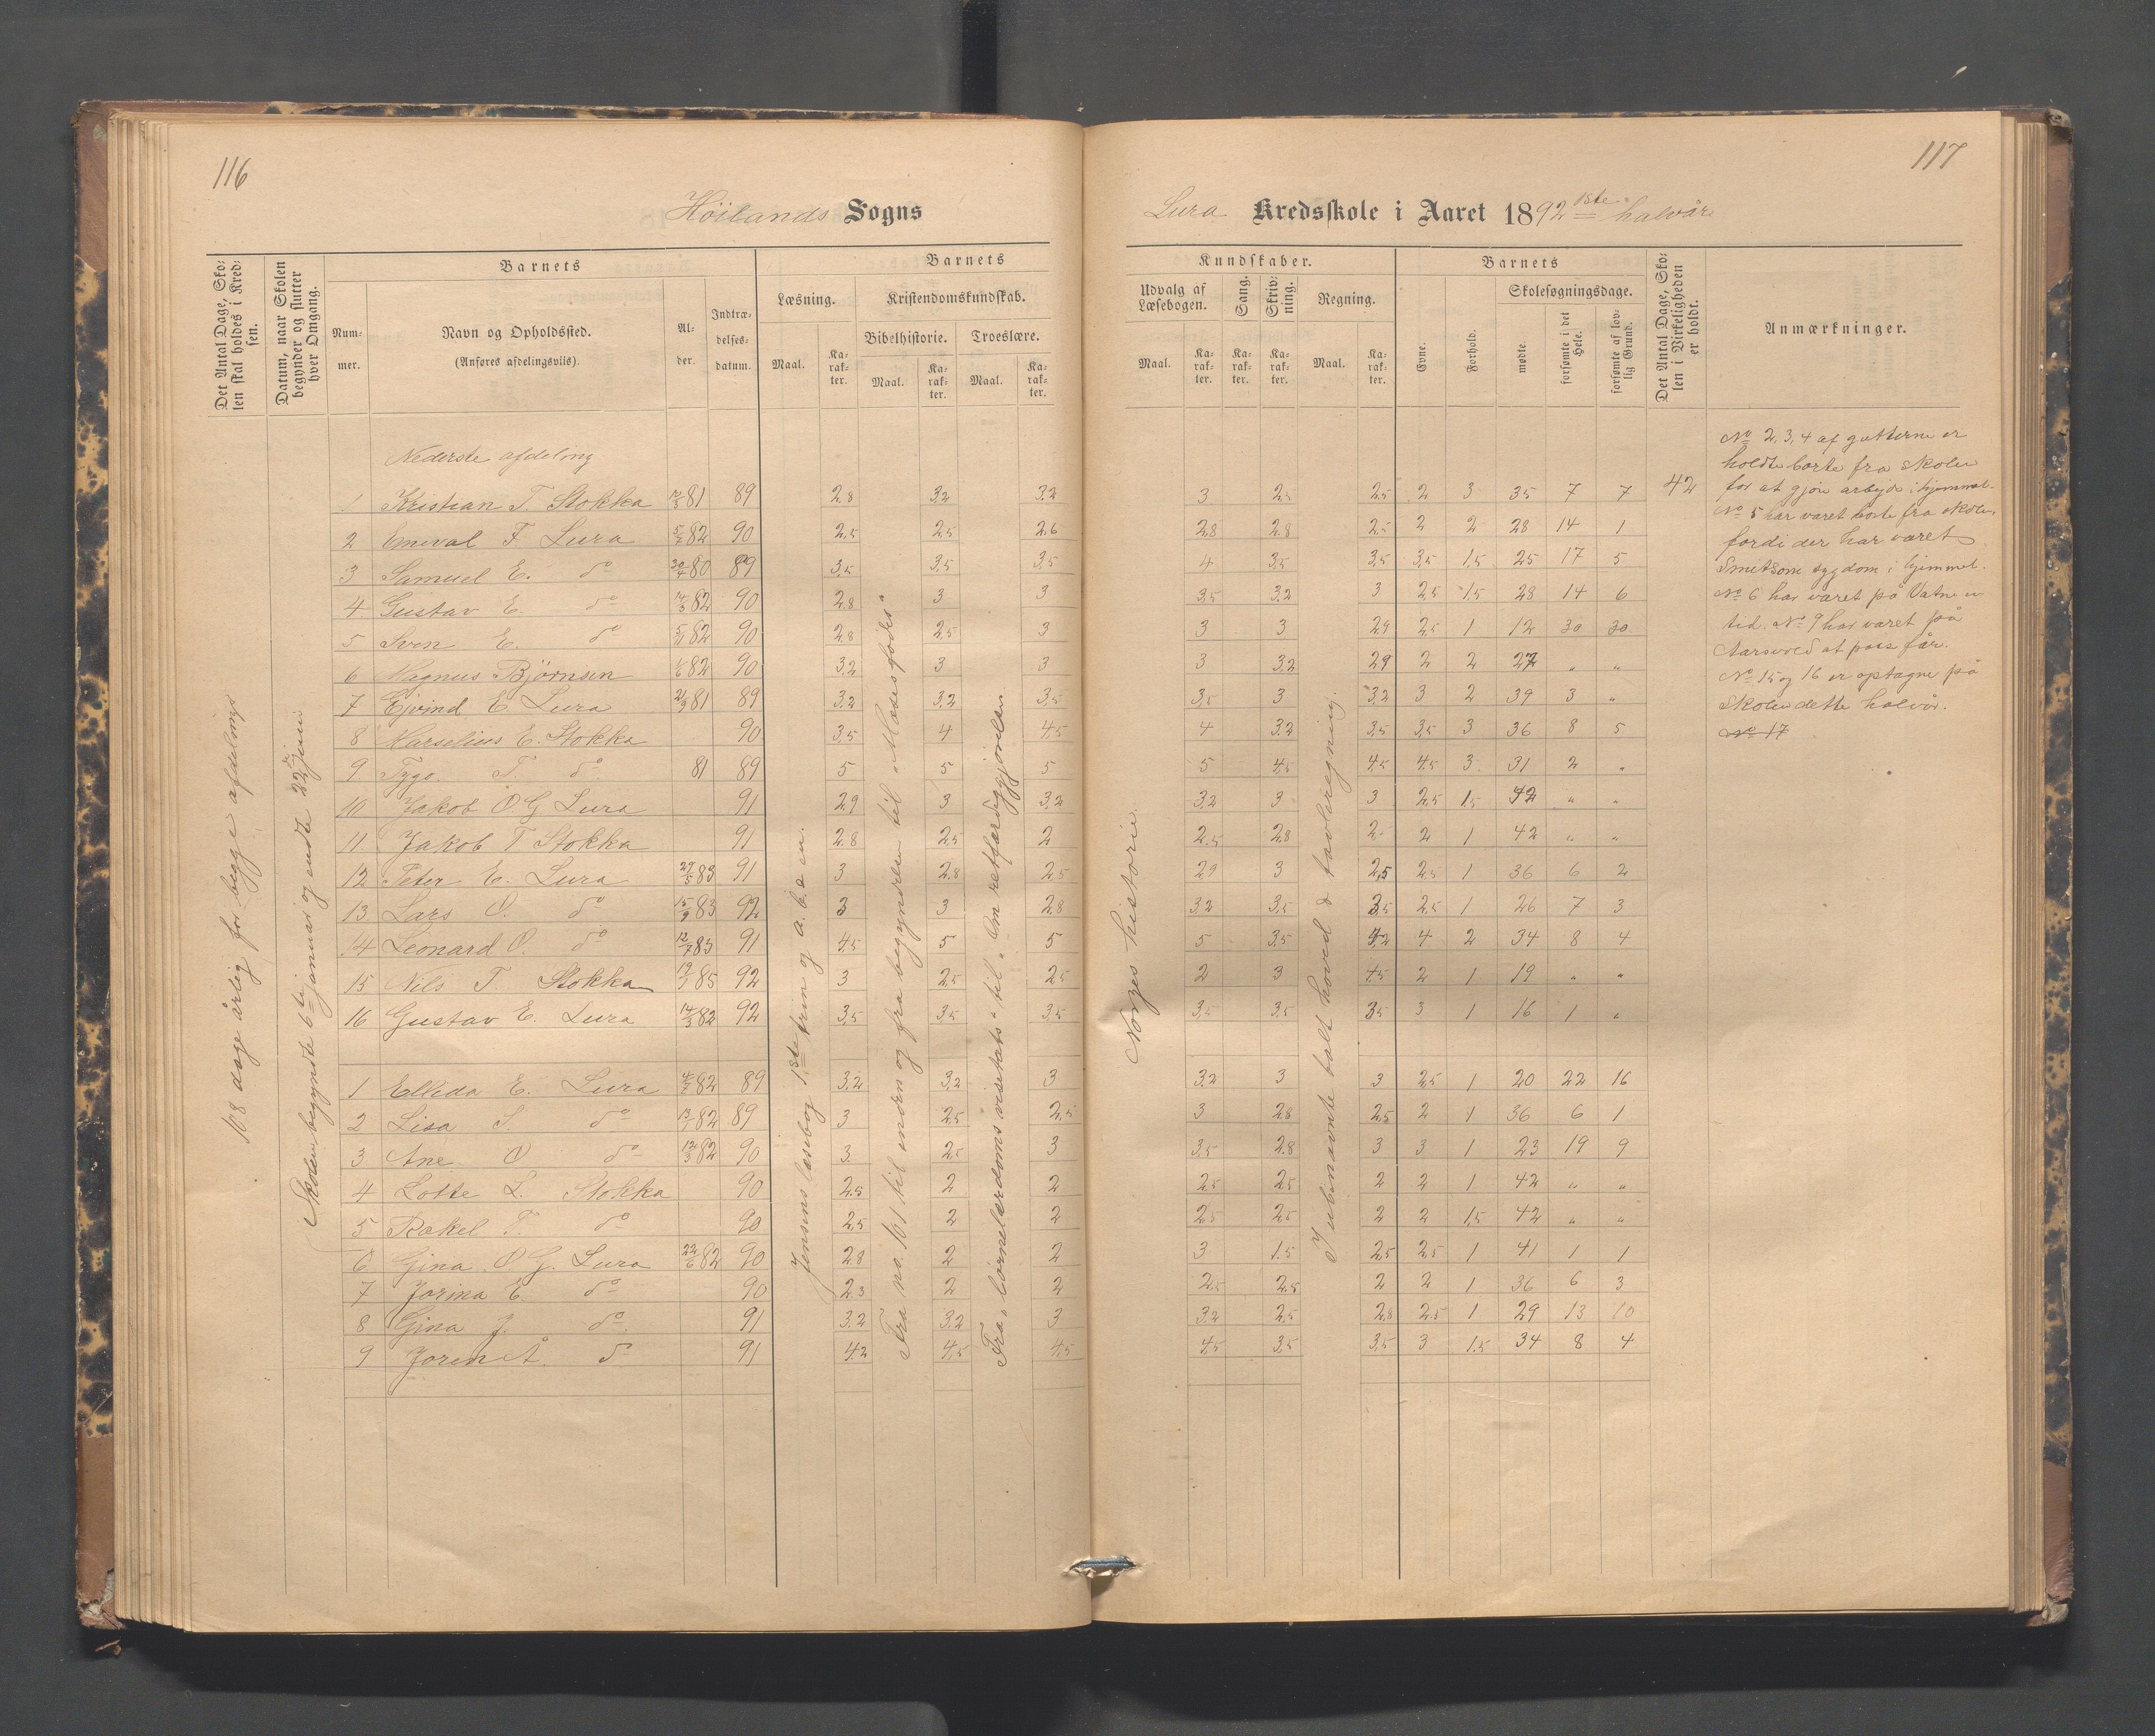 116
Höilands Sogns
Det Antal Dage, Skolen skal holdes i Kredsen.
Datum, naar Skolen begynder og slutter hver Omgang.
Barnets
Nummer.
Navn og Opholdssted.
(Anføres afdelingsvis).
Alder.
Indtrædelsesdatum.
Barnets
Læsning.
Maal.
Karakter.
Kristendomskundskab.
Bibelhistorie.
Maal.
Karakter.
Troeslære.
Maal.
Karakter.
108 dage årlig for begge afdelinger
Skolen begyndte 6te januar og endte 22de juni
Jensens læsebog 1ste trin og a.b.c en.
Fra no. 161 til enden og fra begyndelsen til „Moses fødes“
Fra „børnelærdoms visehets“ til „Om retfærdiggjørelsen
Nederste afdeling
1 Kristian T. Stokka 81 89 2.8 3.2 3.2
2 Eneval F Lura 82 90 2.5 2.5 2.6
3 Samuel E. do 30/4 80 89 3.5 3.5 3.5
4 Gustav E. do 14/3 82 90 2.8 3 3
5 Sven E. do 82 90 2.8 2.5 3
6 Magnus Björnsen 82 90 3.2 3 3
7 Ejvind E Lura 81 89 3.2 3.2 3.5
8 Marselius E. Stokka 90 3.5 4 4.5
9 T. do 81 89 5 5 5
10 Jakob O G Lura 91 2.9 3 3.2
11 Jakob T Stokka 91 2.8 2.5 2
12 Peter E. Lura 83 91 3 2.8 2.5
13 Lars O. do 15/9 83 92 3 3 2.8
14 Leonard O. do 12/7 83 91 4.5 5 5
15 Nils T Stokka 85 92 3 2.5 2.5
16 Gustav E. Lura 14/3 82 92 3.5 3.5 3.5
1 Ellida E. Lura 82 89 3.2 3.2 3
2 Lisa S. do 82 89 3 2.5 2.5
3 Ane O do 82 90 3 2.5 3
4 Lotte L. Stokka 90 2.5 2 2
5 Rakel T. do 90 2.5 2 2
6 Gina O G. Lura 22/6 82 90 2.8 2 2
7 Jorina E do 90 2.3 2 2
8 Gina J. do 91 3.2 3.2 3
9 Joren A. d 91 4.2 4.5 4.5
117
Lura Kredsskole i Aaret 1892 1ste halvår
Kundskaber.
Udvalg af Læsebogen.
Maal.
Karakter.
Sang.
Karakter.
Skrivning.
Karakter.
Regning.
Maal.
Karakter.
Barnets
Evne.
Forhold.
Skolesøgningsdage.
mødte
forsømte i det Hele.
forsømte af lovlig Grund.
Det Antal Dage, Skolen i Virkeligheden er holdt.
Anmærkninger.
Norges historie.
I ubenævnte tal hoved & tavleregning.
3 2.5 2.5 2 3 35 7 7 42
2.8 2.8 2.5 2 2 28 14 1
4 3.5 3.5 3.5 1.5 25 17 5
3.5 3.2 3 2.5 1.5 28 14 6
3 3 2.9 2.5 1 12 30 30
3 3.2 2.9 2 2 27 " "
3.5 3 3.2 3 2 39 3 "
4 3.2 3.5 3.5 3 36 8 5
5 4.5 4.5 4.5 3 31 2 "
3.2 3 3 2.5 1.5 42 " "
2.5 2.8 2 2 1 42 " "
2.9 3 2.5 2.5 1 36 6 2
3.2 3.5 3.5 2.5 1 26 7 3
5 3.5 4.2 4 2 34 8 4
2 3 4.5 2 1 19 " "
3.5 3.5 3.5 3 1 16 1 "
3.2 3 3 2.5 1 20 22 16
3 2.8 2.5 2 1 36 6 1
3.5 2.8 3 3 1 23 19 9
2.5 2.5 2 2 1 42 " "
2.5 2.5 2 2 1.5 42 " "
3 1.5 2.5 2.5 1 41 1 1
2.5 2.5 2 2 1 36 6 3
3.2 2.5 2.8 2.5 1 29 13 10
4.5 3.5 3.5 3 1.5 34 8 4
No 2, 3, 4 af gutterne er
holdte borte fra skolen
for at gjøre arbejde i hjemmet.
No 5 har været borte fra skolen,
fordi der har været
Smetsom sygdom i hjemmet.
No 6 har været på Vatne en
tid. No 9 har været på
Aarsvold at pass får.
No 15 og 16 er optagne på
skolen dette halvår.
No 17